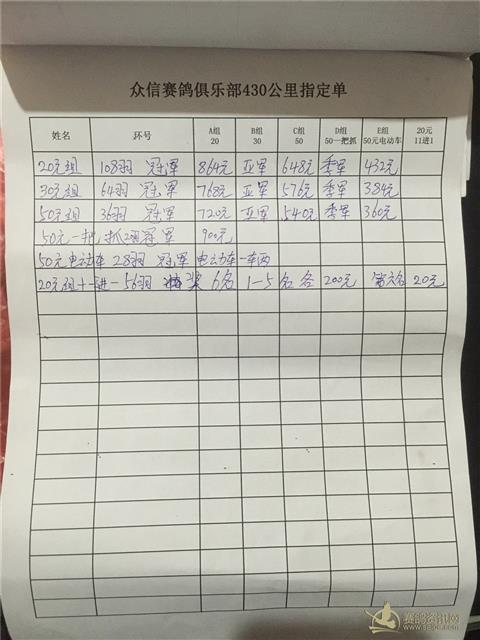 众信赛鸽俱乐部430公里指定单
姓名 环号 A组 20 B组 30 C组 50 D组 50一把抓 E组 50元电动车 20元 11进1
20元组 108羽 冠军 864元 亚军 648元 季军 432元
30元组 64羽 冠军 768元 亚军 576元 季军 384元
50元组 36羽 冠军 720元 亚军 540元 季军 360元
50元一把抓 羽冠军 900元
50元电动车 28羽 冠军 电动车一车两
20元组十一进一 56羽 奖 6名 1-5名各 200元 第六名 20元
赛鸽资讯网